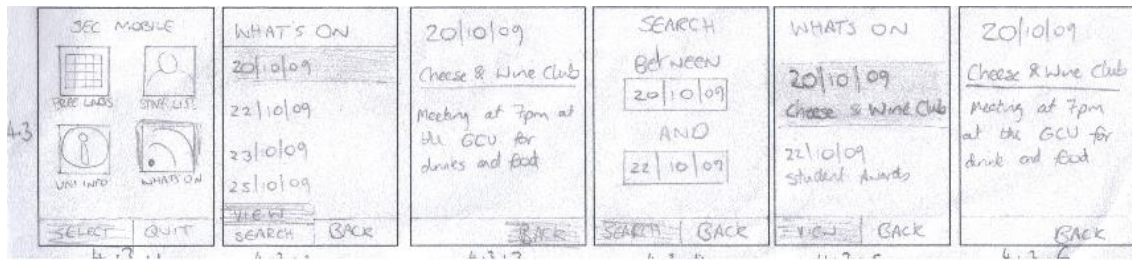 4.3
SEC MOBILE
FREE LABS STAFF LIST
UNI INFO WHAT'S ON
SELECT QUIT
4.3.1
WHAT'S ON
20/10/09
22/10/09
23/10/09
25/10/09
VIEW
SEARCH BACK
20/10/09
Cheese & Wine Club
Meeting at 7pm at
the GCU for
drinks and food
BACK
SEARCH
BETWEEN
20/10/09
AND
22/10/09
SEARCH BACK
WHATS ON
20/10/09
Cheese & Wine Club
22/10/09
Student Awards
VIEW BACK
20/10/09
Cheese & Wine Club
Meeting at 7pm
at the GCU for
drink and food
BACK